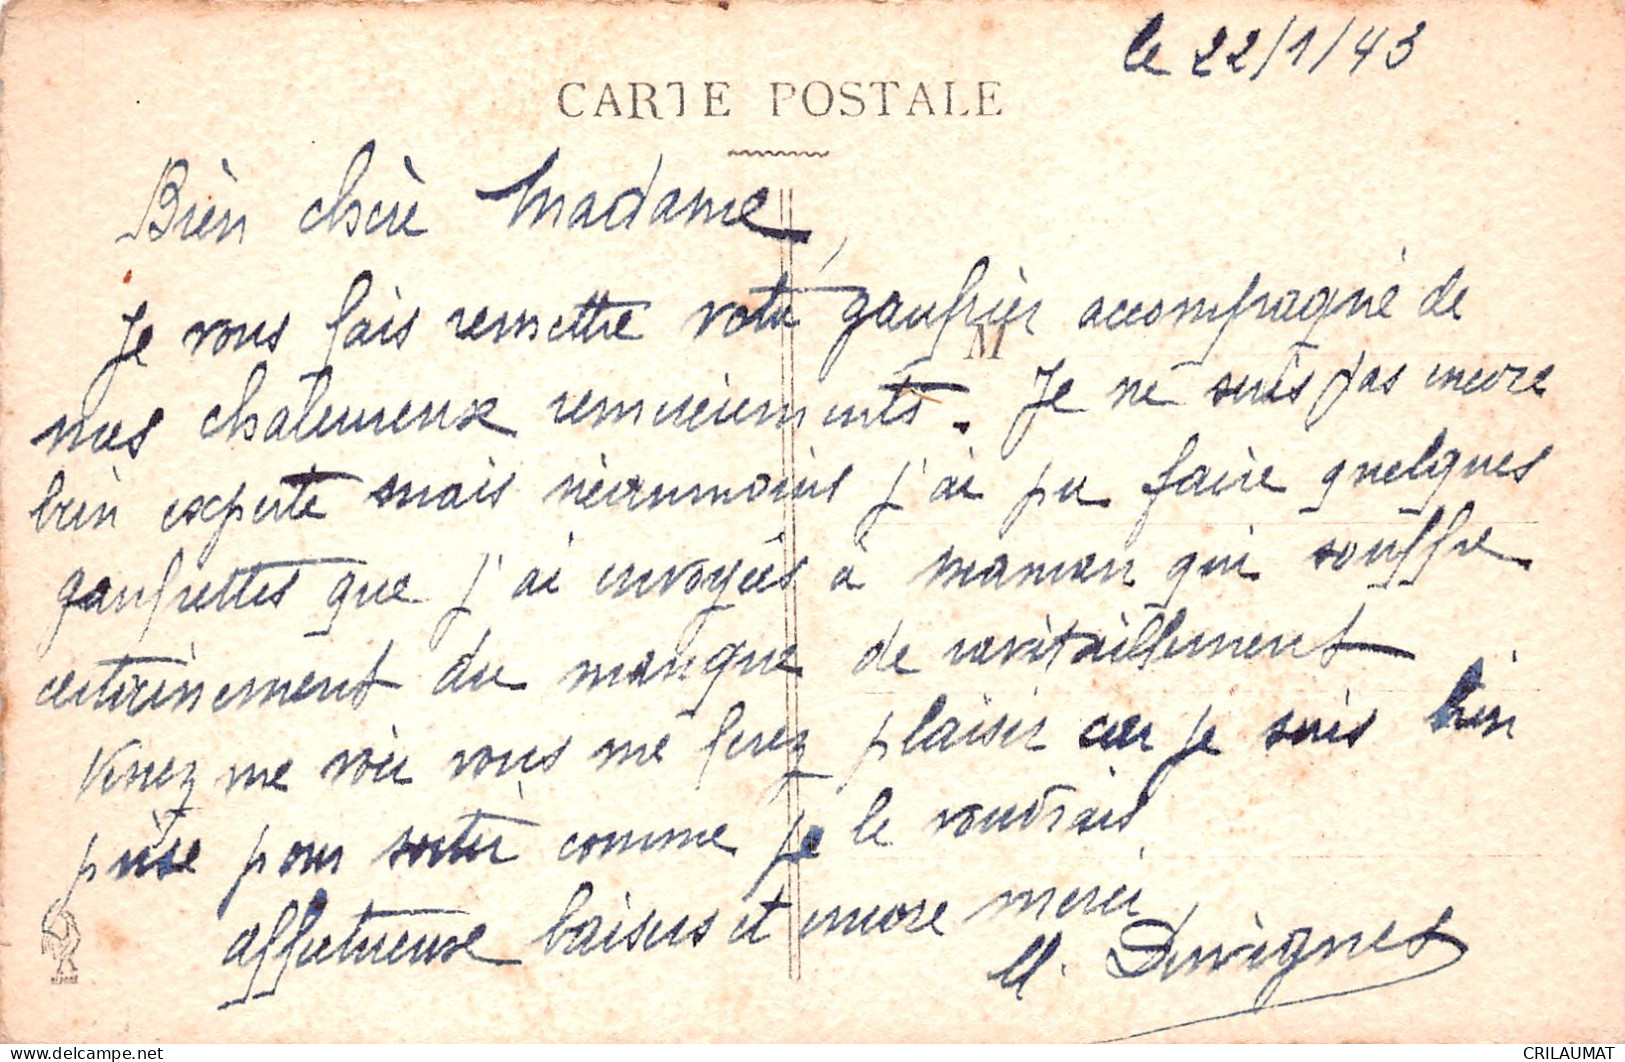 le 22/1/43
CARTE POSTALE
Bien chère Madame,
Je vous fais remettre votre gaufrier accompagné de
M
mes chaleureux remerciements. Je ne suis pas encore
bien experte mais néanmoins j'ai pu faire quelques
gaufrettes que j'ai envoyées à maman qui souffre
certainement du manque de ravitaillement
Venez me voir vous me ferez plaisir car je suis bien
prise pour sortir comme je le voudrais
affectueux baisers et encore merci
M. Duvignes
CRILAUMAT